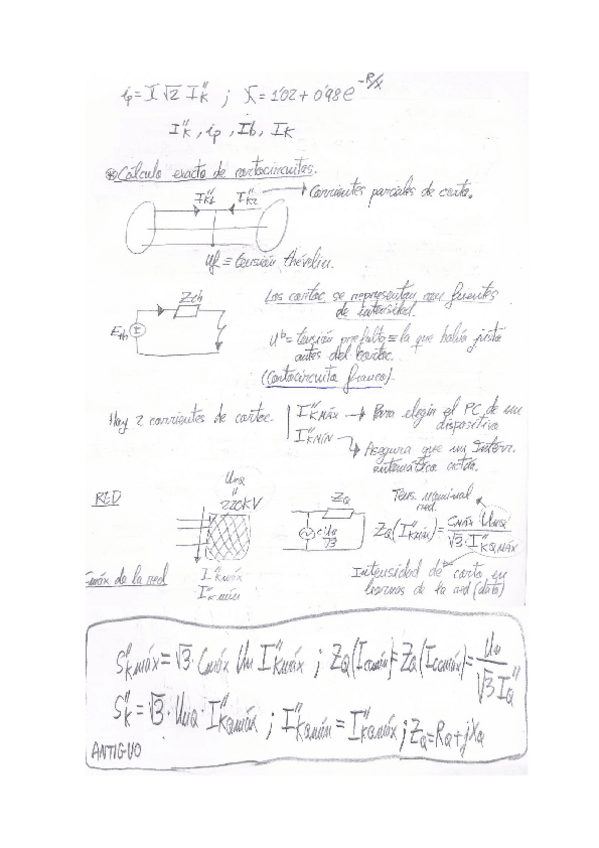 ip = X √2 I"K ; X = 1'02 + 0'98 e^-R/X
I"K , ip , Ib , IK
⊛ Cálculo exacto de cortocircuitos.
I"K1 I"K2 → Corrientes parciales de cortoc.
Uf ≡ tensión thévenin.
Zth
Eth
Los cortoc. se representan con fuentes
de intensidad.
U^b = tensión prefalta ≡ la que había justo
antes del cortoc.
(Cortocircuito franco).
Hay 2 corrientes de cortoc.
I"KMÁX → Para elegir el PC de un
dispositivo
I"KMÍN → Asegura que un Interr.
automático actúa.
RED
UnQ
220KV
ZQ
Tens. nominal
red.
ZQ(I"Kmín) = Cmáx · UnQ / √3 · I"KQMÁX
máx de la red
I"Kmáx
I"Kmín
Intensidad de corto en
bornas de la red (dato)
S"Kmáx = √3 · Cmáx Un I"Kmáx ; ZQ(Iccmín) = ZQ(Iccmáx) = Un / √3 I"Q
S"K = √3 · UnQ · I"KQmáx ; I"KQmín = I"KQmáx ; ZQ = RQ + jXQ
ANTIGUO